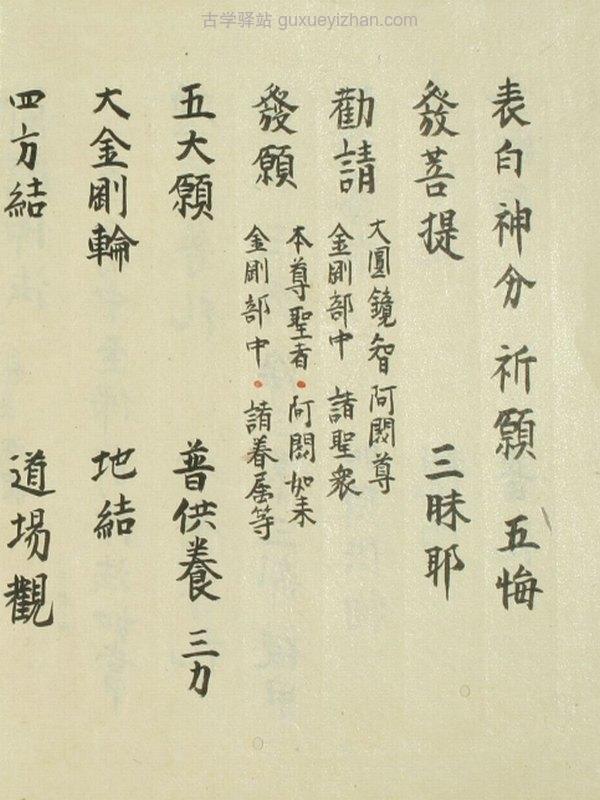 古学驿站 guxueyizhan.com
表白 神分 祈願 五悔
發菩提 三昧耶
勸請
大圓鏡智阿閦尊
金剛部中 諸聖衆
發願
本尊聖者 阿閦如来
金剛部中 諸眷属等
五大願 普供養 三力
大金剛輪 地結
四方結 道場觀